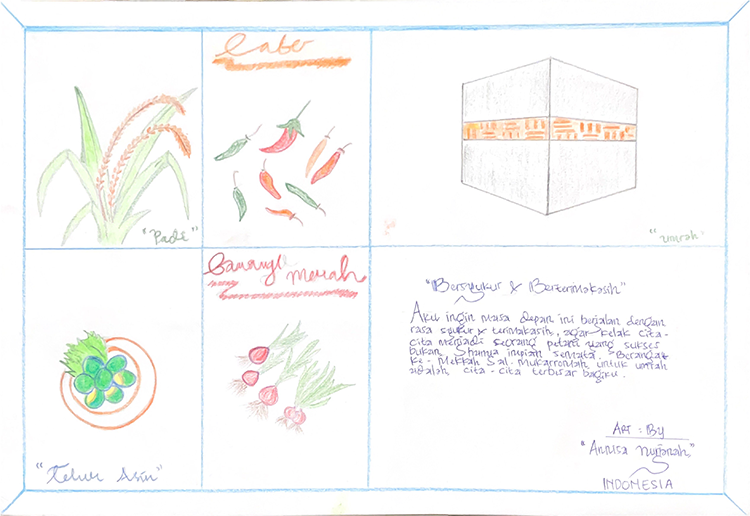 Cabe
"Padi"
"umrah"
Bawang
merah
"Telur Asin"
"Bersyukur & Berterimakasih"
Aku ingin masa depan ini berjalan dengan
rasa syukur & terimakasih, agar kelak cita-
cita menjadi seorang petani yang sukses
bukan hanya impian semata. Berangkat
ke-Mekkah Al-Mukarromah untuk umrah
adalah cita-cita terbesar bagiku.
ART : By
"Annisa Nurjanah"
INDONESIA